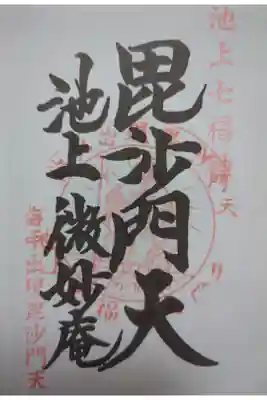 池上七福神めぐり
毘沙門天
池上 微妙庵
毘沙門天